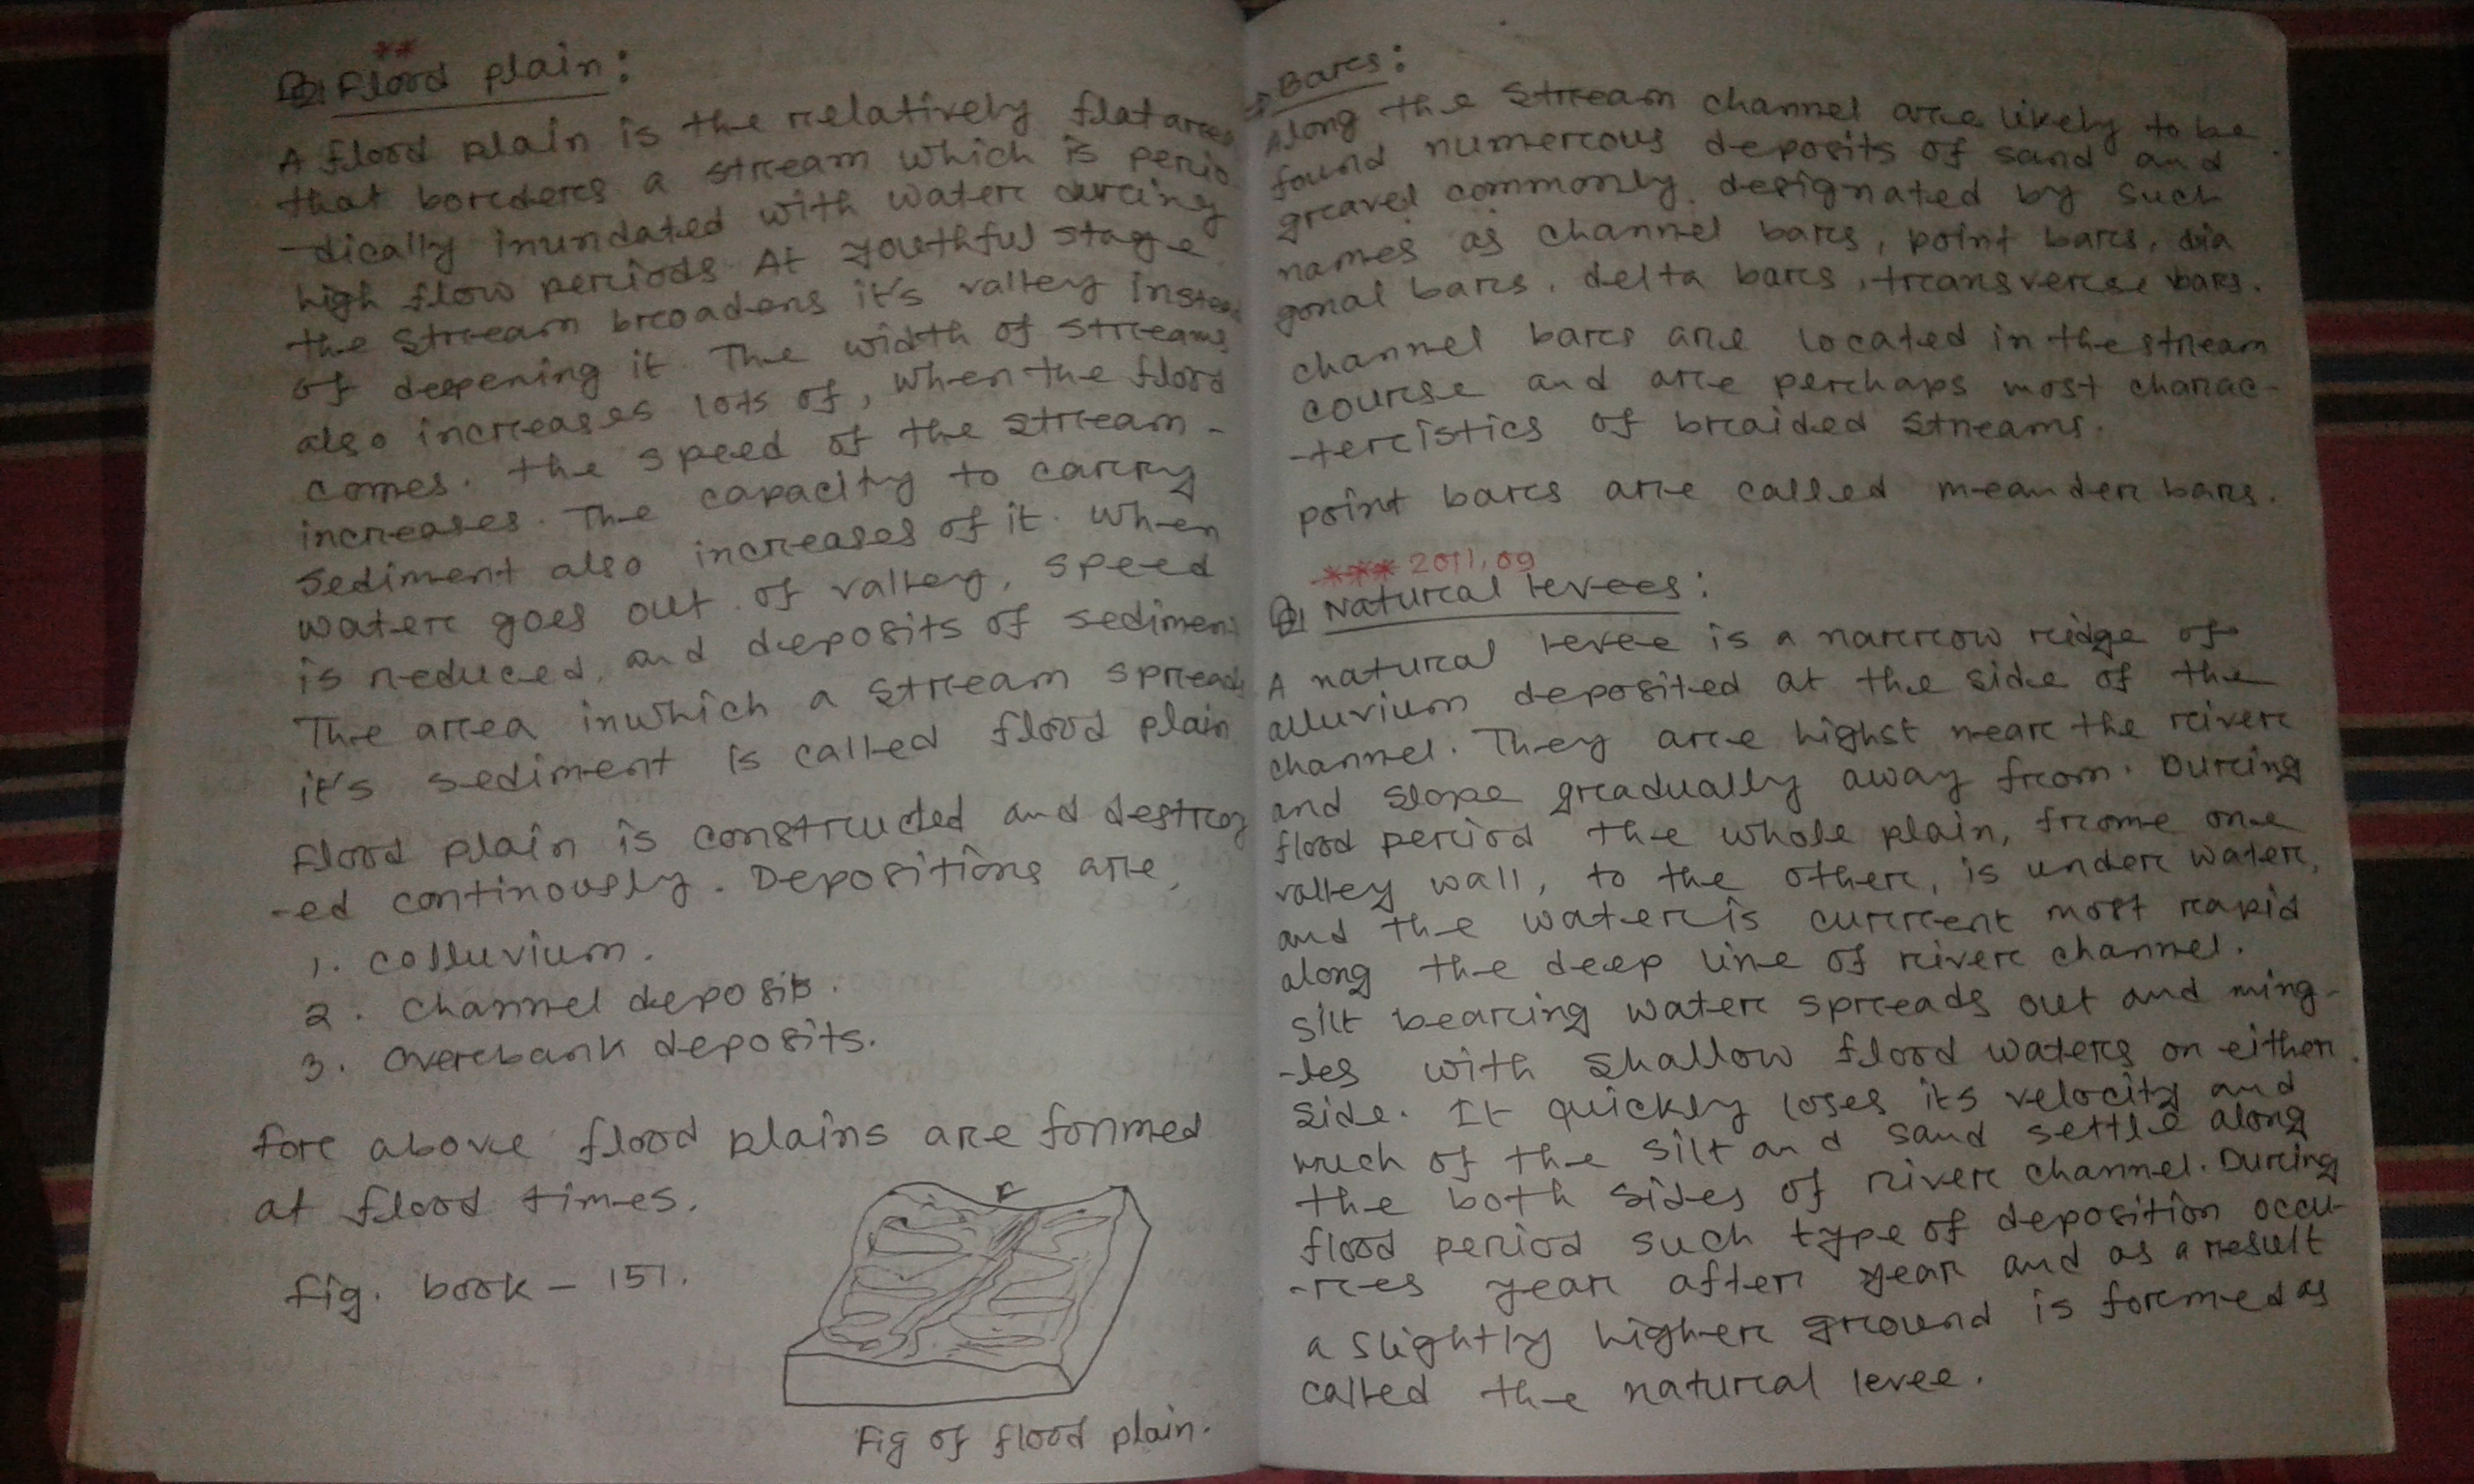 **
Q! Flood plain:
A flood plain is the relatively flat area
that borders a stream which is perio
-dically inundated with water during
high flow periods. At youthful stage
the stream broadens it's valley instead
of deepening it. The width of streams
also increases lots of, when the flood
comes. the speed of the stream -
increases. The capacity to carry
sediment also increases of it. When
water goes out of valley, speed
is reduced, and deposits of sediment
The area inwhich a stream spreads
it's sediment is called flood plain
Flood plain is constructed and destroy
-ed continously. Depositions are,
1. colluvium.
2. Channel deposits.
3. Overbank deposits.
for above flood plains are formed
at flood times.
Fig. book - 151.
Fig of flood plain.
→ Bars:
Along the stream channel are likely to be
found numerous deposits of sand and
gravel commonly designated by such
names as channel bars, point bars, dia
gonal bars, delta bars, transverse bars.
channel bars are located in the stream
course and are perhaps most charac-
-teristics of braided streams.
point bars are called meander bars.
*** 2011, 09
Q! Natural levees:
A natural levee is a narrow ridge of
alluvium deposited at the side of the
channel. They are highst near the river
and slope gradually away from. During
flood period the whole plain, frome one
valley wall, to the other, is under water,
and the water is current most rapid
along the deep line of river channel.
silt bearing water spreads out and ming-
-les with shallow flood waters on either
side. It quickly loses its velocity and
much of the silt and sand settle along
the both sides of river channel. During
flood period such type of deposition occu-
-res year after year and as a result
a slightly higher ground is formed as
called the natural levee.